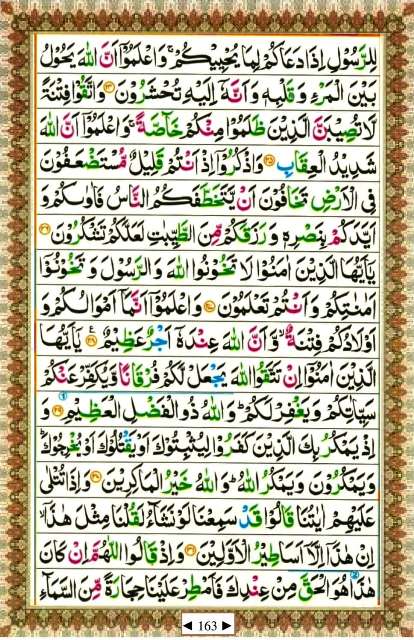 لِلرَّسُوْلِ اِذَا دَعَاكُمْ لِمَا يُحْيِيْكُمْ ۚ وَاعْلَمُوْٓا اَنَّ اللّٰهَ يَحُوْلُ
بَيْنَ الْمَرْءِ وَ قَلْبِهٖ وَ اَنَّهٗٓ اِلَيْهِ تُحْشَرُوْنَ ﴿۲۴﴾ وَاتَّقُوْا فِتْنَةً
لَّا تُصِيْبَنَّ الَّذِيْنَ ظَلَمُوْا مِنْكُمْ خَآصَّةً ۚ وَاعْلَمُوْٓا اَنَّ اللّٰهَ
شَدِيْدُ الْعِقَابِ ﴿۲۵﴾ وَاذْكُرُوْٓا اِذْ اَنْتُمْ قَلِيْلٌ مُّسْتَضْعَفُوْنَ
فِى الْاَرْضِ تَخَافُوْنَ اَنْ يَّتَخَطَّفَكُمُ النَّاسُ فَاٰوٰىكُمْ وَ
اَيَّدَكُمْ بِنَصْرِهٖ وَ رَزَقَكُمْ مِّنَ الطَّيِّبٰتِ لَعَلَّكُمْ تَشْكُرُوْنَ ﴿۲۶﴾
يٰٓاَيُّهَا الَّذِيْنَ اٰمَنُوْا لَا تَخُوْنُوا اللّٰهَ وَ الرَّسُوْلَ وَ تَخُوْنُوْٓا
اَمٰنٰتِكُمْ وَ اَنْتُمْ تَعْلَمُوْنَ ﴿۲۷﴾ وَاعْلَمُوْٓا اَنَّمَآ اَمْوَالُكُمْ وَ
اَوْلَادُكُمْ فِتْنَةٌ ۙ وَّ اَنَّ اللّٰهَ عِنْدَهٗٓ اَجْرٌ عَظِيْمٌ ﴿۲۸﴾ يٰٓاَيُّهَا
الَّذِيْنَ اٰمَنُوْٓا اِنْ تَتَّقُوا اللّٰهَ يَجْعَلْ لَّكُمْ فُرْقَانًا وَّ يُكَفِّرْ عَنْكُمْ
سَيِّاٰتِكُمْ وَ يَغْفِرْ لَكُمْ ؕ وَ اللّٰهُ ذُو الْفَضْلِ الْعَظِيْمِ ﴿۲۹﴾ وَ
اِذْ يَمْكُرُ بِكَ الَّذِيْنَ كَفَرُوْا لِيُثْبِتُوْكَ اَوْ يَقْتُلُوْكَ اَوْ يُخْرِجُوْكَ ؕ
وَ يَمْكُرُوْنَ وَ يَمْكُرُ اللّٰهُ ؕ وَ اللّٰهُ خَيْرُ الْمٰكِرِيْنَ ﴿۳۰﴾ وَ اِذَا تُتْلٰى
عَلَيْهِمْ اٰيٰتُنَا قَالُوْا قَدْ سَمِعْنَا لَوْ نَشَآءُ لَقُلْنَا مِثْلَ هٰذَآ ۙ
اِنْ هٰذَآ اِلَّآ اَسَاطِيْرُ الْاَوَّلِيْنَ ﴿۳۱﴾ وَ اِذْ قَالُوا اللّٰهُمَّ اِنْ كَانَ
هٰذَا هُوَ الْحَقَّ مِنْ عِنْدِكَ فَاَمْطِرْ عَلَيْنَا حِجَارَةً مِّنَ السَّمَآءِ
◄ 163 ►